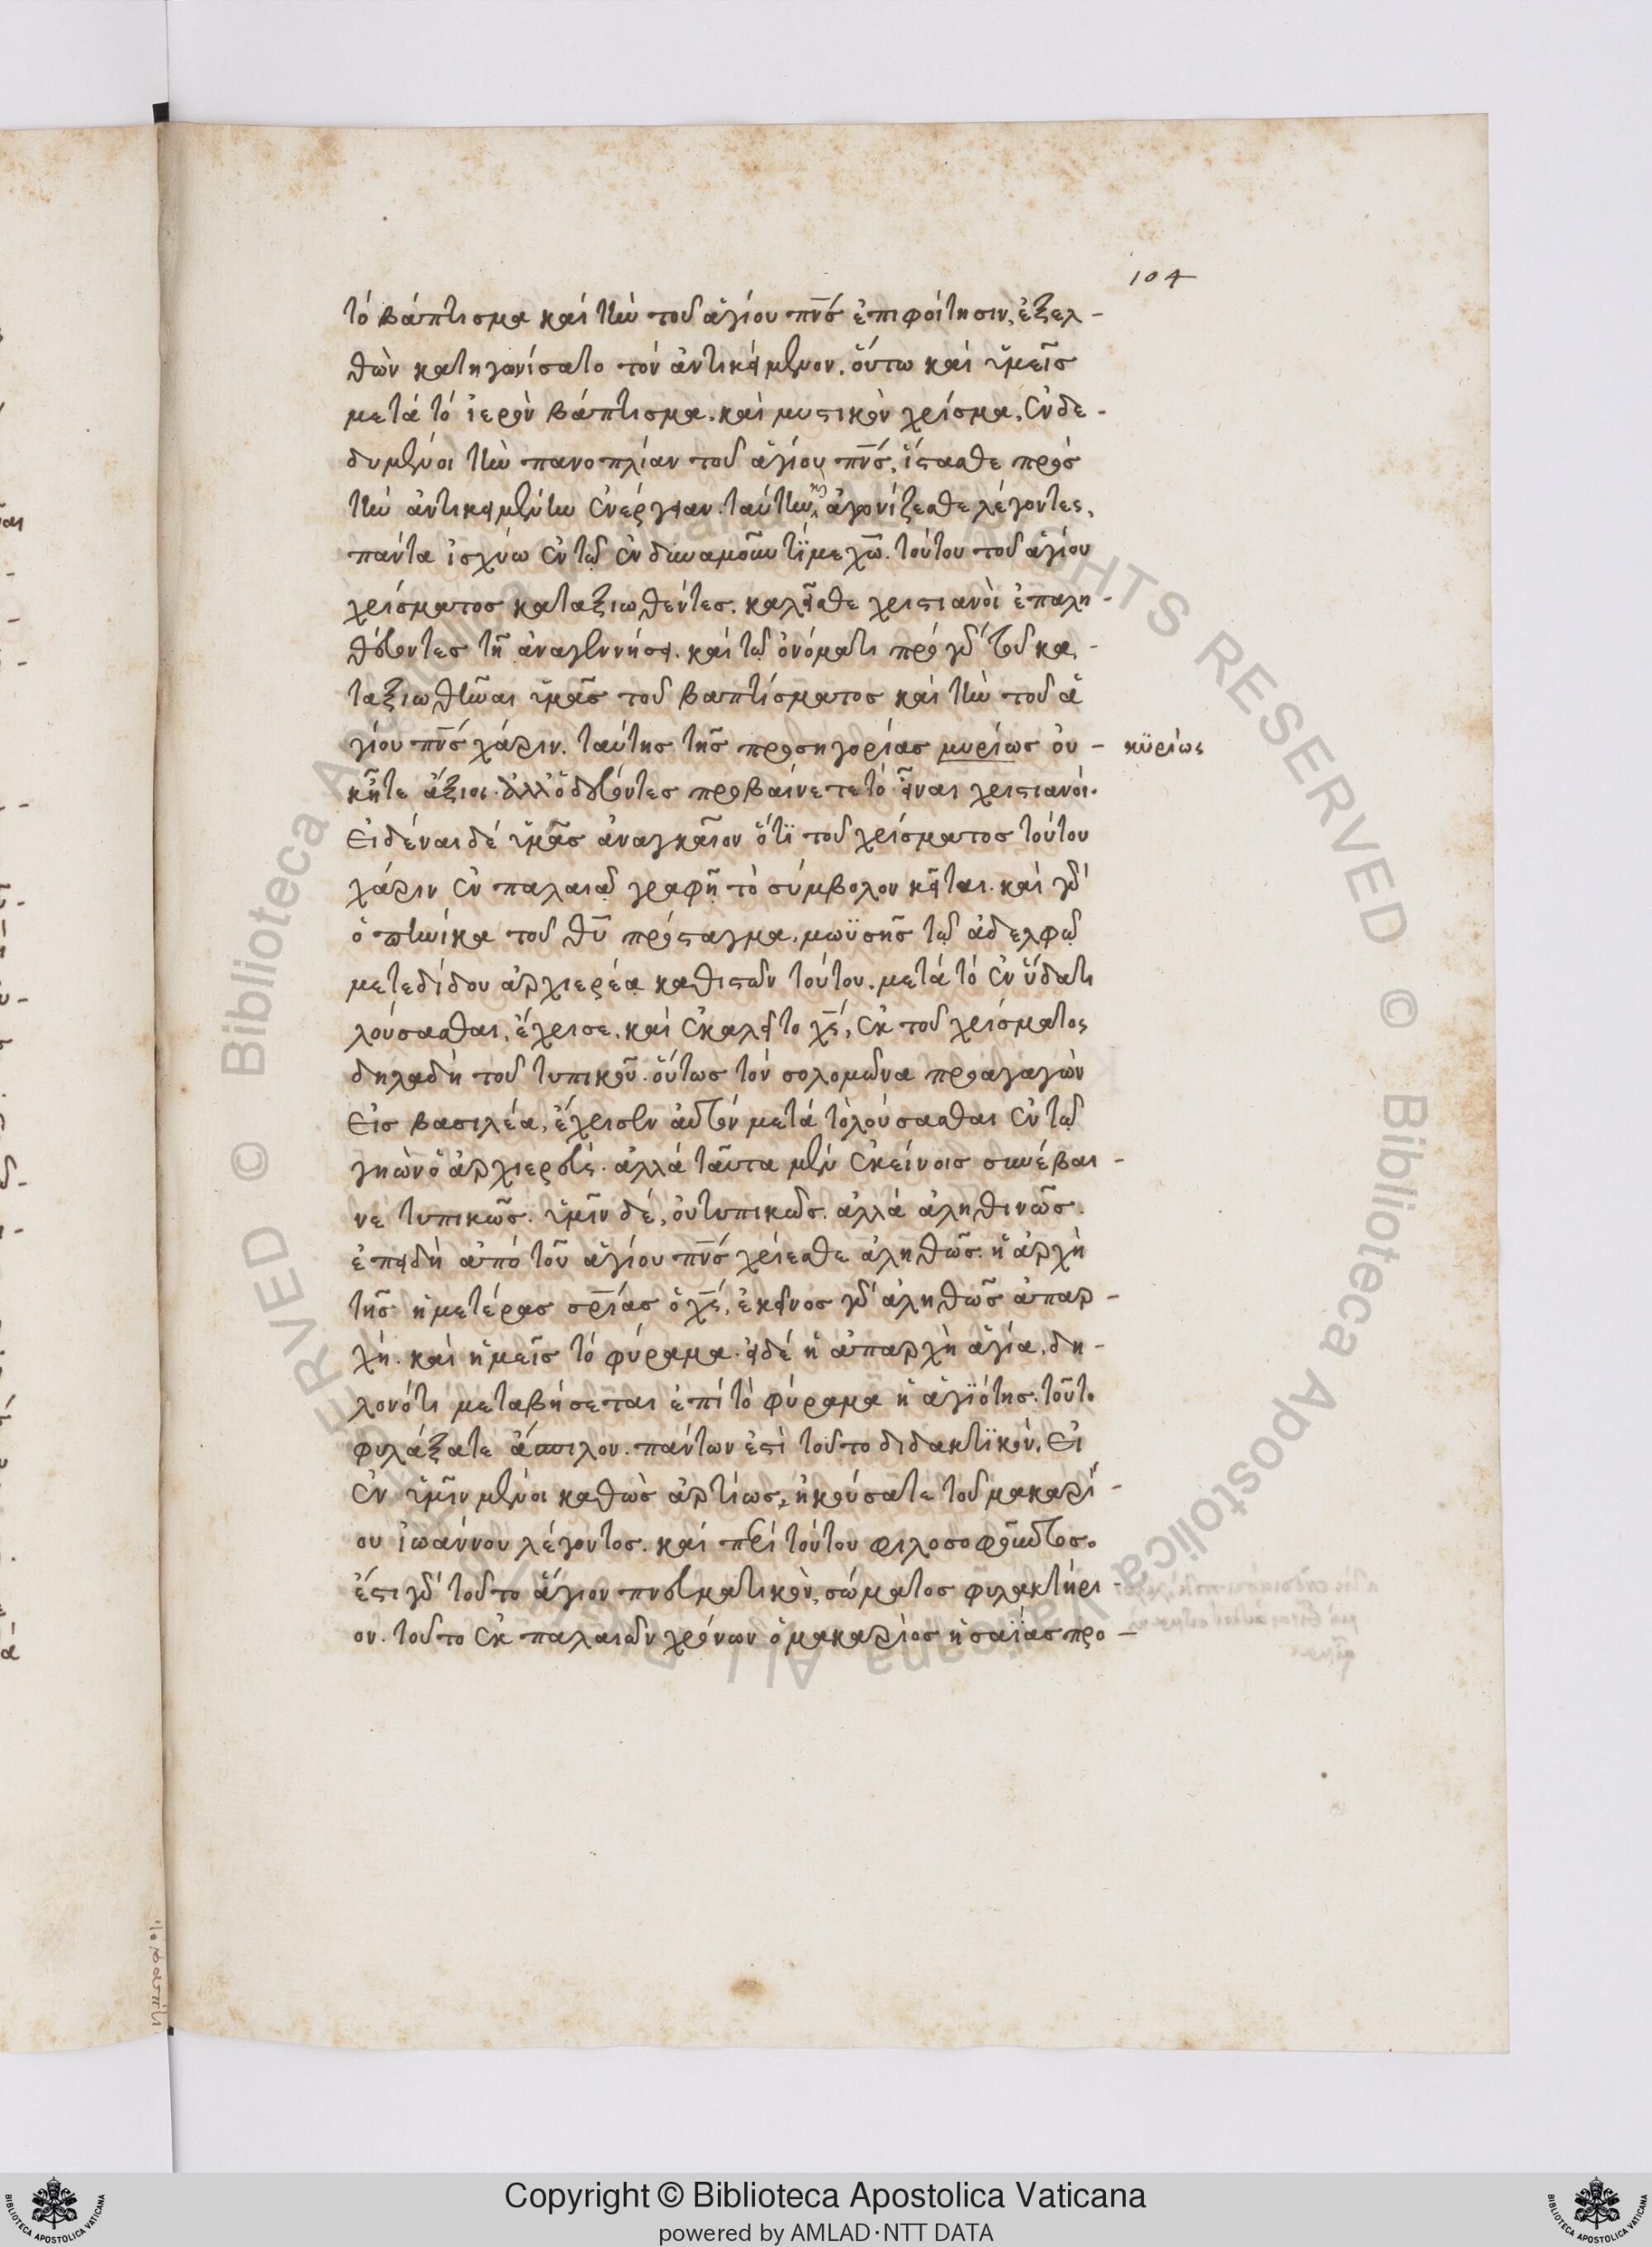 104
τὸ βάπτισμα καὶ τὴν τοῦ ἁγίου πν̅ς ἐπιφοίτησιν, ἐξελ-
θὼν κατηγωνίσατο τὸν ἀντικείμενον. οὕτω καὶ ὑμεῖς
μετὰ τὸ ἱερὸν βάπτισμα. καὶ μυστικὸν χρίσμα, ἐνδε-
δυμένοι τὴν πανοπλίαν τοῦ ἁγίου πν̅ς, ἵστασθε πρὸς
τὴν ἀντικειμένην ἐνέργειαν. ταύτην ἀγωνίζεσθε λέγοντες,
πάντα ἰσχύω ἐν τῷ ἐνδυναμοῦντί με χω̅. τούτου τοῦ ἁγίου
χρίσματος καταξιωθέντες. καλεῖσθε χριστιανοὶ ἐπαλη-
θεύοντες τῇ ἀναγεννήσει. καὶ τῷ ὀνόματι πρὸ γὰρ τοῦ κα-
ταξιωθῆναι ὑμᾶς τοῦ βαπτίσματος καὶ τὴν τοῦ ἁ
γίου πν̅ς χάριν. ταύτης τῆς προσηγορίας μυρίως οὐ-
κ ἦτε ἄξιοι. ἀλλ' ὁδεύοντες προβαίνετε τὸ εἶναι χριστιανοί.
κϋρίως
Εἰδέναι δὲ ὑμᾶς ἀναγκαῖον ὅτϊ τοῦ χρίσματος τούτου
χάριν ἐν παλαιᾷ γραφῇ τὸ σύμβολον κεῖται. καὶ γὰρ
ὁπηνίκα τοῦ θυ̅ πρόσταγμα. μωϋσῆς τῷ ἀδελφῷ
μετεδίδου ἀρχιερέα καθιστῶν τοῦτον. μετὰ τὸ ἐν ὕδατι
λούσασθαι, ἔχρισε. καὶ ἐκαλεῖτο χς̅, ἐκ τοῦ χρίσματος
δηλαδὴ τοῦ τυπικοῦ. οὕτως τὸν σολομῶνα προαγαγὼν
Εἰς βασιλέα, ἔχρισεν αὐτὸν μετὰ τὸ λούσασθαι ἐν τῷ
γηὼν ὁ ἀρχιερεύς. ἀλλὰ ταῦτα μὲν ἐκείνοις συνέβαι-
νε τυπικῶς. ὑμῖν δέ, οὐ τυπικῶς. ἀλλὰ ἀληθινῶς.
ἐπειδὴ ἀπὸ τοῦ ἁγίου πν̅ς χρίεσθε ἀληθῶς. ἡ ἀρχὴ
τῆς ἡμετέρας σρ̅ίας ὁ χς̅, ἐκεῖνος γὰρ ἀληθῶς ἀπαρ-
χή. καὶ ἡμεῖς τὸ φύραμα. εἰ δὲ ἡ ἀπαρχὴ ἁγία, δη-
λονότι μεταβήσεται ἐπὶ τὸ φύραμα ἡ ἁγϊότης. τοῦτο
φυλάξατε ἄσπιλον. πάντων ἐστὶ τοῦτο διδακτϊκόν, Εἰ
ἐν ὑμῖν μένοι καθὼς ἀρτίως, ἠκούσατε τοῦ μακαρί-
ου ἰωάννου λέγοντος. καὶ περὶ τούτου φιλοσοφοῦντος.
ἔστι γὰρ τοῦτο ἅγιον πνευματικὸν, σώματος φυλακτήρι-
ον. τοῦτο ἐκ παλαιῶν χρόνων ὁ μακάριος ἡσαΐας προ-
Copyright © Biblioteca Apostolica Vaticana
powered by AMLAD·NTT DATA
© Biblioteca Apostolica Vaticana ALL RIGHTS RESERVED
BIBLIOTECA APOSTOLICA VATICANA
BIBLIOTECA APOSTOLICA VATICANA